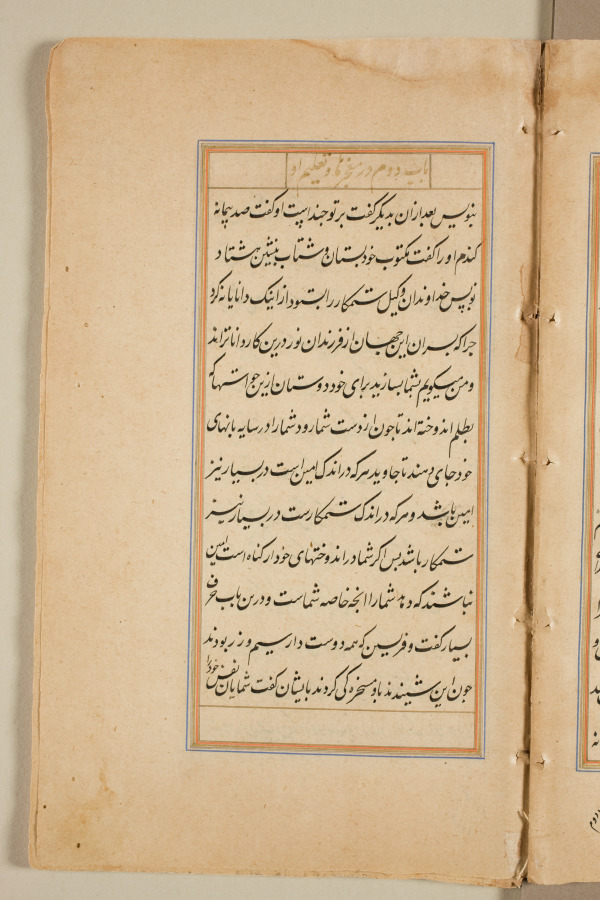 باب دوم در معجزها و تعلیم او
بنویس بعد ازان بدیکر کفت بر تو چند است او کفت صد پیمانه
کندم او را کفت مکتوب خود بستان و شتاب بنشین هشتاد
نویس خداوندان وکیل ستمکار را بستود از اینک دانایانه کرد
چرا که پسران این جهان از فرزندان نور درین کار داناتر اند
و من میکویم بشما بسازید برای خود دوستان ازین خواستها که
بظلم اندوخته اند تا چون از دست شما رود شما را در سایه بانهای
خود جای دهند تا جاوید هرکه در اندک امین است در بسیار نیز
امین باشد و هرکه در اندک ستمکارست در بسیار نیز
ستمکار باشد پس اکر شما در اندوختهای خودار کناه است امین
نباشند که دهد شما را انچه خاصه شماست و درین باب حرف
بسیار کفت و فریسین که همه دوست دار سیم و زر بودند
چون این شنیدند باو مسخره کی کردند بایشان کفت شمایان نفس خود را